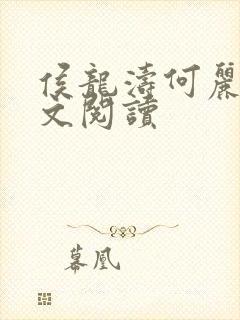 侯龍濤何麗
文閱讀
慕凰